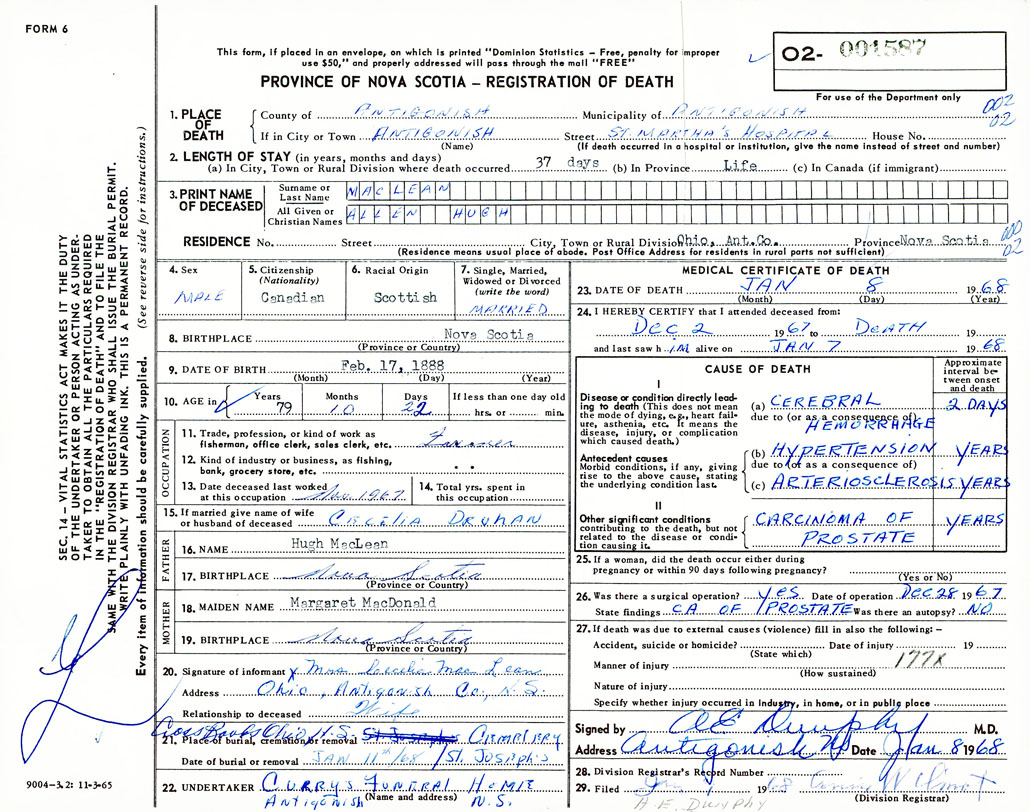 FORM 6
This form, if placed in an envelope, on which is printed "Dominion Statistics – Free, penalty for improper
use $50," and properly addressed will pass through the mail "FREE"
PROVINCE OF NOVA SCOTIA – REGISTRATION OF DEATH
O2- 001587
For use of the Department only
002
02
1. PLACE OF DEATH
County of ANTIGONISH Municipality of ANTIGONISH
If in City or Town ANTIGONISH Street ST. MARTHA'S HOSPITAL House No.
(Name) (If death occurred in a hospital or institution, give the name instead of street and number)
2. LENGTH OF STAY (in years, months and days)
(a) In City, Town or Rural Division where death occurred 37 days (b) In Province Life (c) In Canada (if immigrant)
3. PRINT NAME OF DECEASED
Surname or Last Name MACLEAN
All Given or Christian Names ALLEN HUGH
RESIDENCE No. Street City, Town or Rural Division Ohio, Ant.Co. Province Nova Scotia
000
02
(Residence means usual place of abode. Post Office Address for residents in rural parts not sufficient)
4. Sex MALE
5. Citizenship (Nationality) Canadian
6. Racial Origin Scottish
7. Single, Married, Widowed or Divorced (write the word) MARRIED
8. BIRTHPLACE Nova Scotia
(Province or Country)
9. DATE OF BIRTH Feb. 17, 1888
(Month) (Day) (Year)
10. AGE in Years 79 Months 10 Days 22 If less than one day old hrs. or min.
OCCUPATION
11. Trade, profession, or kind of work as
fisherman, office clerk, sales clerk, etc. Farmer
12. Kind of industry or business, as fishing,
bank, grocery store, etc.
13. Date deceased last worked
at this occupation Nov. 1967
14. Total yrs. spent in
this occupation
15. If married give name of wife
or husband of deceased Cecelia Druhan
FATHER
16. NAME Hugh MacLean
17. BIRTHPLACE Nova Scotia
(Province or Country)
MOTHER
18. MAIDEN NAME Margaret MacDonald
19. BIRTHPLACE Nova Scotia
(Province or Country)
20. Signature of informant x Mrs Cecilia MacLean
Address Ohio, Antigonish Co., N.S.
Relationship to deceased Wife
Cross Roads Ohio N.S.
21. Place of burial, cremation or removal St. Josephs CEMETERY
Date of burial or removal JAN 11th/68 ST. JOSEPH'S
22. UNDERTAKER CURRY'S FUNERAL HOME
(Name and address)
ANTIGONISH N.S.
9004-3.2: 11-3-65
MEDICAL CERTIFICATE OF DEATH
23. DATE OF DEATH JAN 8 1968
(Month) (Day) (Year)
24. I HEREBY CERTIFY that I attended deceased from:
DEC 2 1967 to DEATH 19
and last saw him alive on JAN 7 1968
CAUSE OF DEATH
Approximate interval between onset and death
I
Disease or condition directly leading to death (This does not mean the mode of dying, e.g., heart failure, asthenia, etc. It means the disease, injury, or complication which caused death.)
(a) CEREBRAL 2 DAYS
due to (or as a consequence of)
HEMORRHAGE
Antecedent causes
Morbid conditions, if any, giving rise to the above cause, stating the underlying condition last.
(b) HYPERTENSION YEARS
due to (or as a consequence of)
(c) ARTERIOSCLEROSIS YEARS
II
Other significant conditions contributing to the death, but not related to the disease or condition causing it.
CARCINOMA OF YEARS
PROSTATE
25. If a woman, did the death occur either during
pregnancy or within 90 days following pregnancy?
(Yes or No)
26. Was there a surgical operation? yes Date of operation DEC 28 1967
State findings CA OF PROSTATE Was there an autopsy? NO
27. If death was due to external causes (violence) fill in also the following:–
Accident, suicide or homicide? Date of injury 19
(State which)
177X
Manner of injury
(How sustained)
Nature of injury
Specify whether injury occurred in Industry, in home, or in public place
Signed by A E Dunphy M.D.
Address Antigonish NS Date Jan 8 1968
28. Division Registrar's Record Number
29. Filed 1968
(Division Registrar)
SEC. 14 – VITAL STATISTICS ACT MAKES IT THE DUTY
OF THE UNDERTAKER OR PERSON ACTING AS UNDER-
TAKER TO OBTAIN ALL THE PARTICULARS REQUIRED
IN THE "REGISTRATION OF DEATH" AND TO FILE THE
SAME WITH THE DIVISION REGISTRAR WHO SHALL ISSUE THE BURIAL PERMIT.
WRITE PLAINLY WITH UNFADING INK. THIS IS A PERMANENT RECORD.
Every item of information should be carefully supplied. (See reverse side for instructions.)